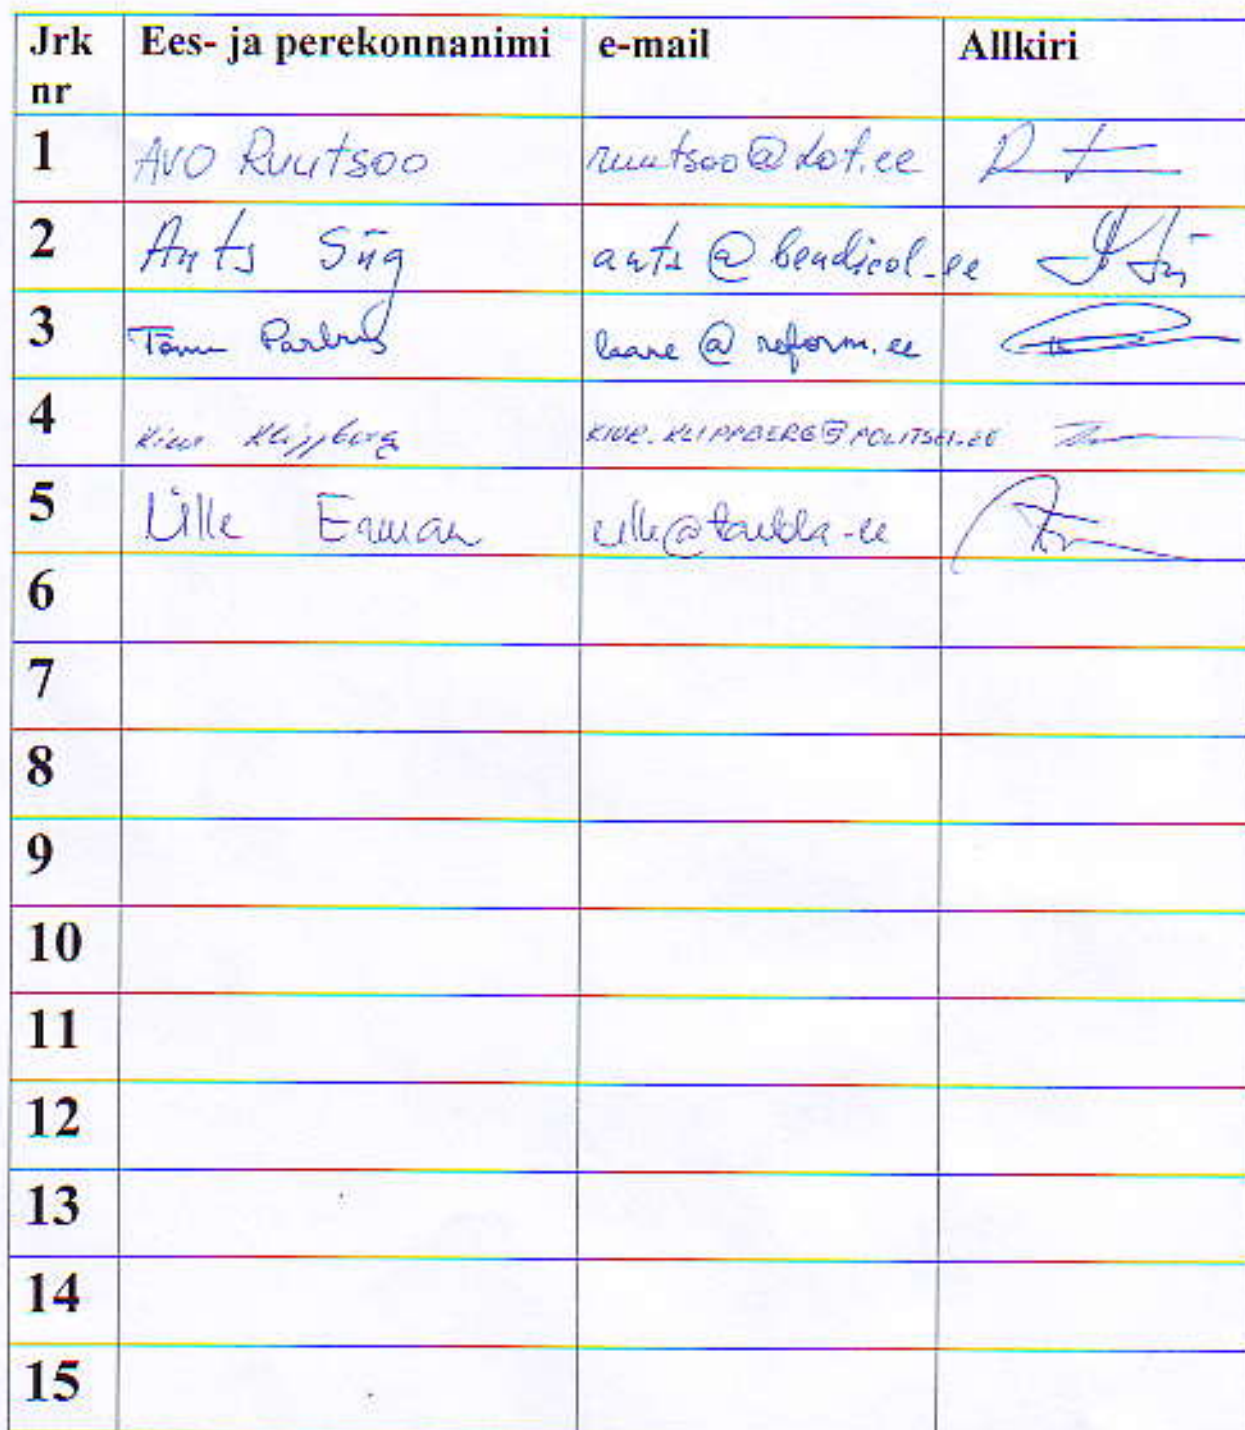 Jrk nr Ees- ja perekonnanimi e-mail Allkiri
1 AVO Ruutsoo ruutsoo@dot.ee
2 Ants Siig ants@bendicol.ee
3 Tõnu Parbus laane@reform.ee
4 Kiur Klippberg KIUR.KLIPPBERG@POLITSEI.EE
5 Ülle Erman ylle@taebla.ee
6
7
8
9
10
11
12
13
14
15